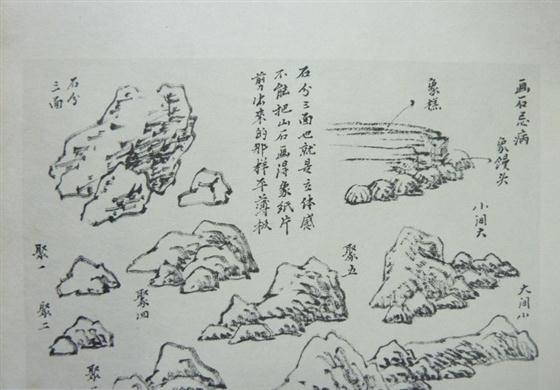 画石忌病
象馒头
象糕
小间大
大间小
石分三面也就是立体感
不能把山石画得象纸片
剪出来的那样平薄板
石分
三面
聚一
聚二
聚四
聚五